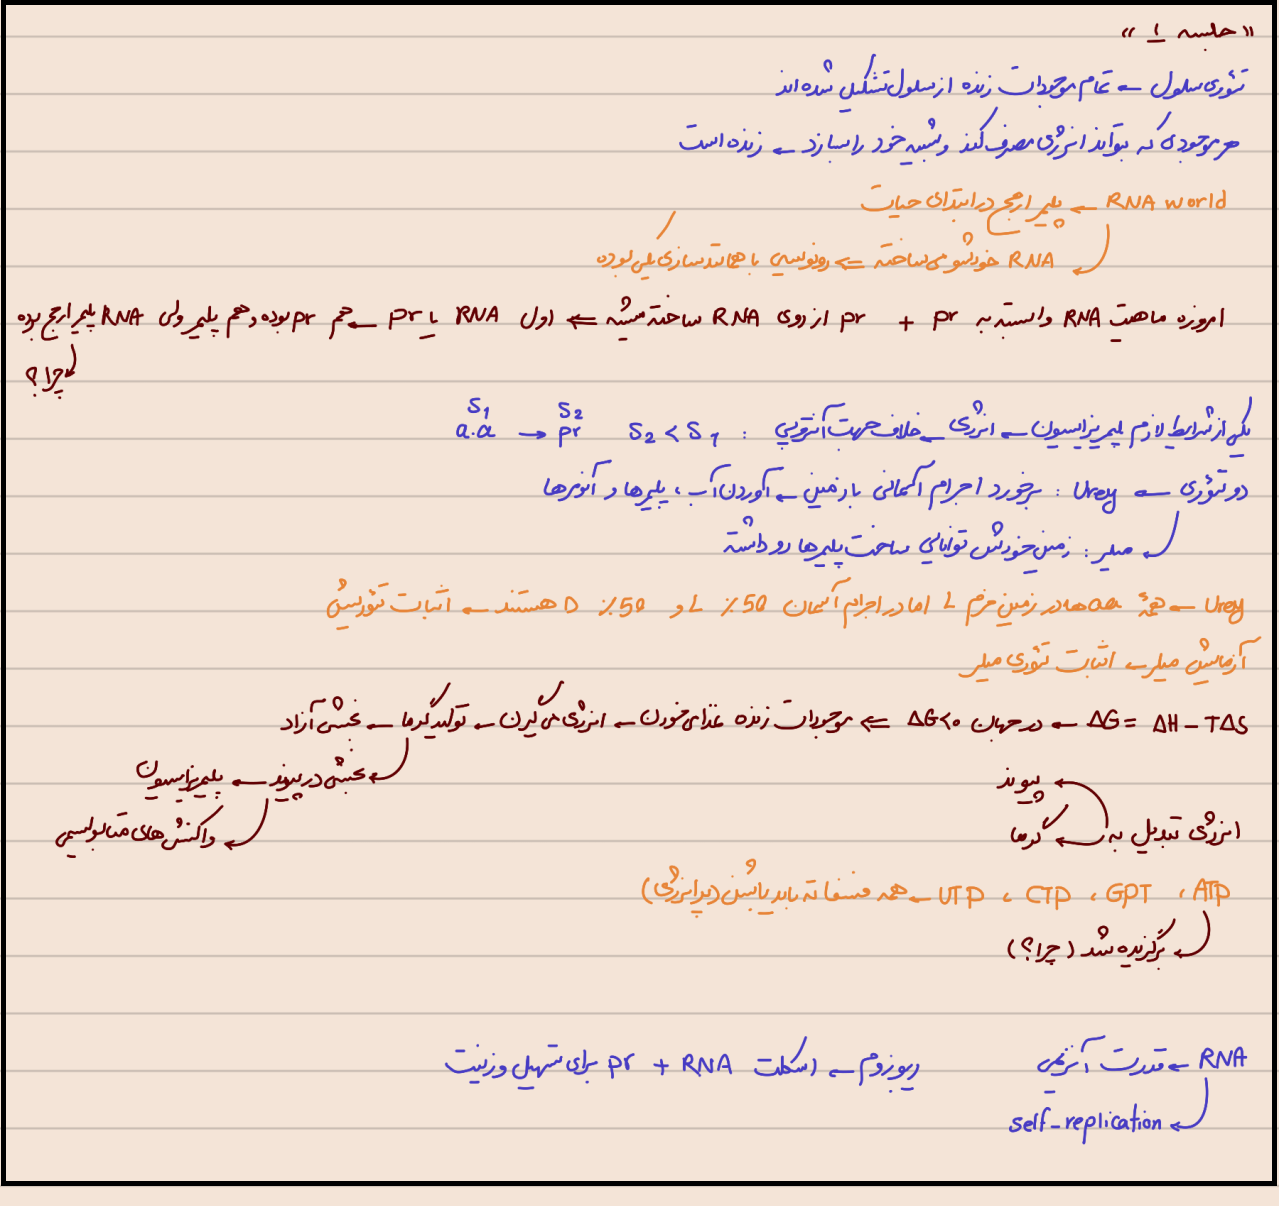 « جلسه ۱ »
تئوری سلول ← تمام موجودات زنده از سلول تشکیل شده اند
هر موجودی که بتواند انرژی مصرف کند و شبیه خود را بسازد ← زنده است
RNA world ← پلیمر ارجح در ابتدای حیات
RNA خودشو می ساخته ⇐ رونویسی یا همانندسازی یکی بوده
امروزه ماهیت RNA وابسته به pr + pr از روی RNA ساخته میشه ⇐ اول RNA یا pr ← هم pr بوده و هم پلیمر ولی RNA پلیمر ارجح بوده
چرا؟
یکی از شرایط لازم پلیمریزاسیون ← انرژی ← خلاف جهت آنتروپی : S2 < S1 a.a S1 → pr S2
دو تئوری ← Urey : برخورد اجرام آسمانی با زمین ← آوردن آب ، پلیمرها و آنومرها
میلر : زمین خودش توانایی ساخت پلیمرها رو داشته
Urey ← همۀ aa ها در زمین فرم L اما در اجرام آسمان 50٪ L و 50٪ D هستند ← اثبات تئوریش
آزمایش میلر ← اثبات تئوری میلر
ΔG = ΔH - TΔS ← در جهان ΔG<0 ⇐ موجودات زنده غذا می خورن ← انرژی می گیرن ← تولید گرما ← بخشی آزاد
بخشی در پیوند ← پلیمریزاسیون
پیوند
واکنش های متابولیسمی
انرژی تبدیل به ← گرما
ATP ، GPT ، CTP ، UTP ← همه فسفاته باید باشن (پرانرژی)
برگزیده شد (چرا؟)
RNA ← قدرت آنزیمی
ریبوزوم ← اسکلت RNA + pr برای تسهیل وزنیت
self-replication